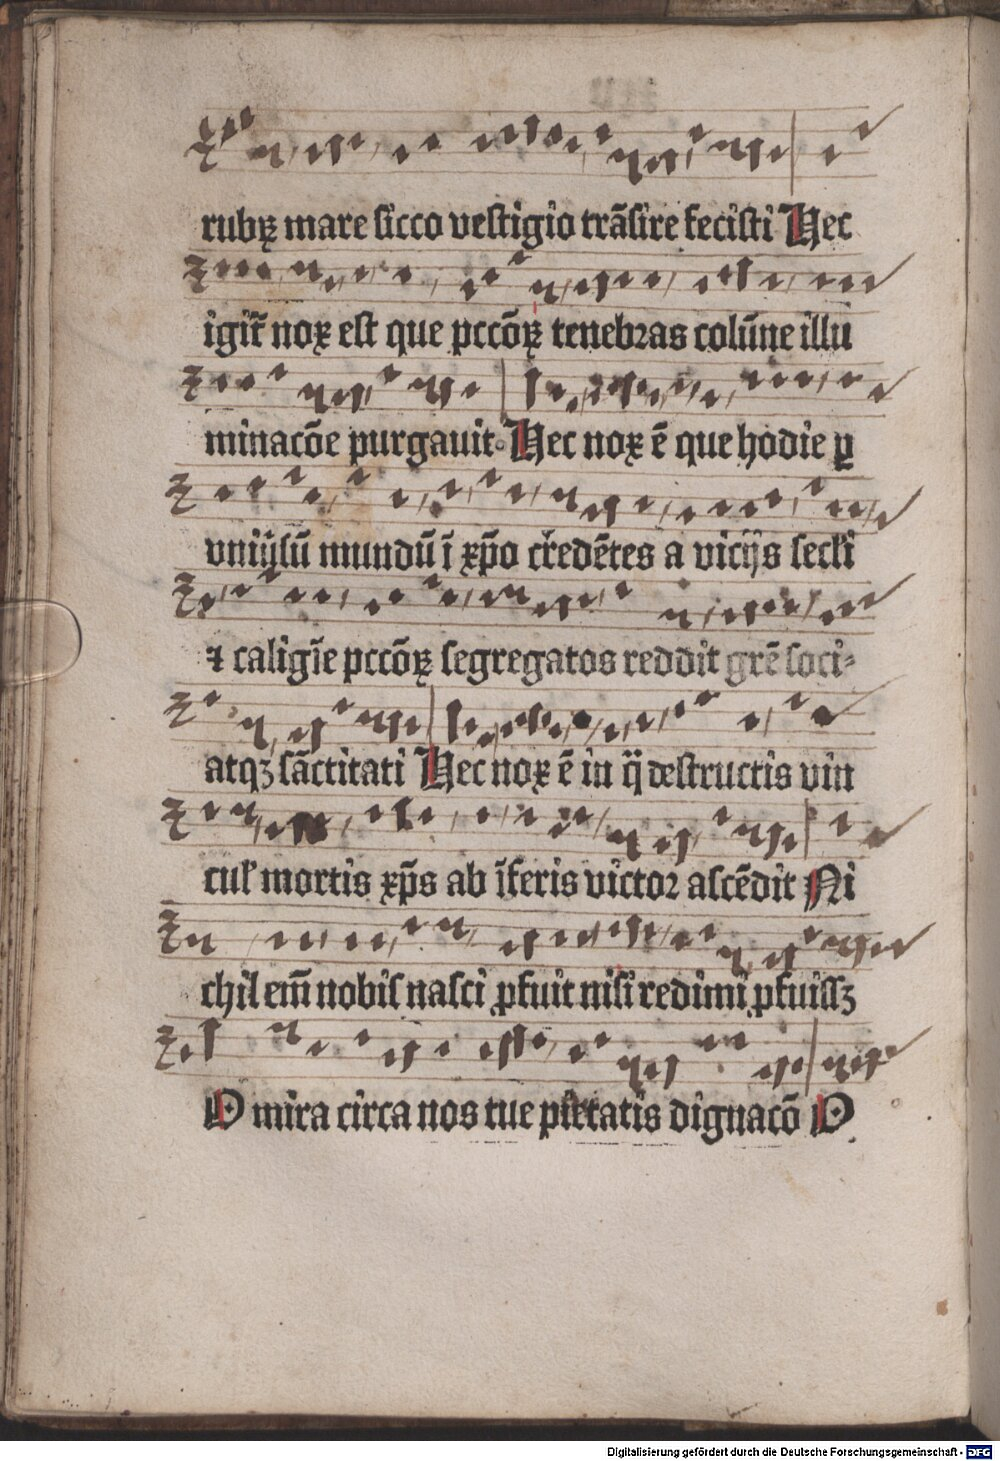 rubꝝ mare sicco vestigio trāsire fecisti Hec
igit̄ nox est que pccōꝝ tenebras colūne illu
minacōe purgauit· Hec nox ē que hodie ꝑ
vniṽsū mundū ī xp̄o credētes a vicijs secłi
⁊ caligīe pccōꝝ segregatos reddit grē soci⸗
atqꝫ sāctitati Hec nox ē in q̈ destructis vin
cuł mortis xp̄s ab īferis victor ascēdit Ni
chil em̄ nobis nasci ꝓfuit nisi redimi ꝓfuissꝫ
O mira circa nos tue pietatis dignacō O
Digitalisierung gefördert durch die Deutsche Forschungsgemeinschaft - DFG